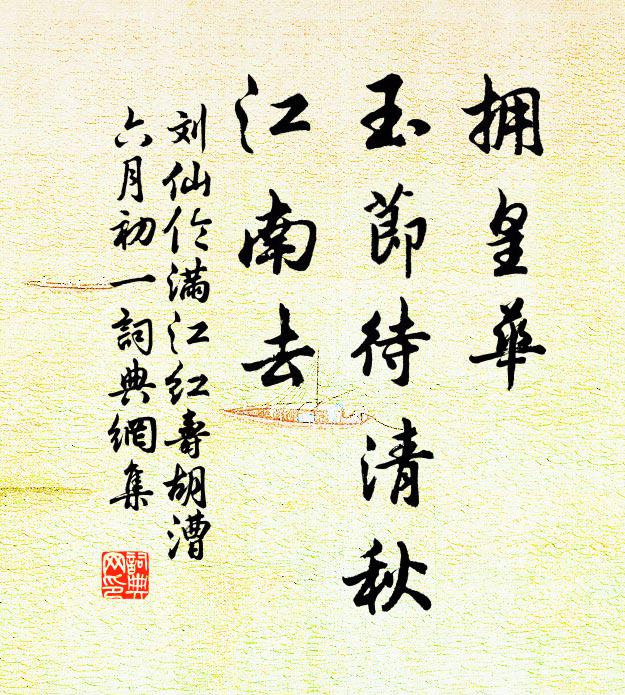 拥皇華
玉節待清秋
江南去
刘仙伦满江红壽胡漕
六月初一詞典網集
詞典网印